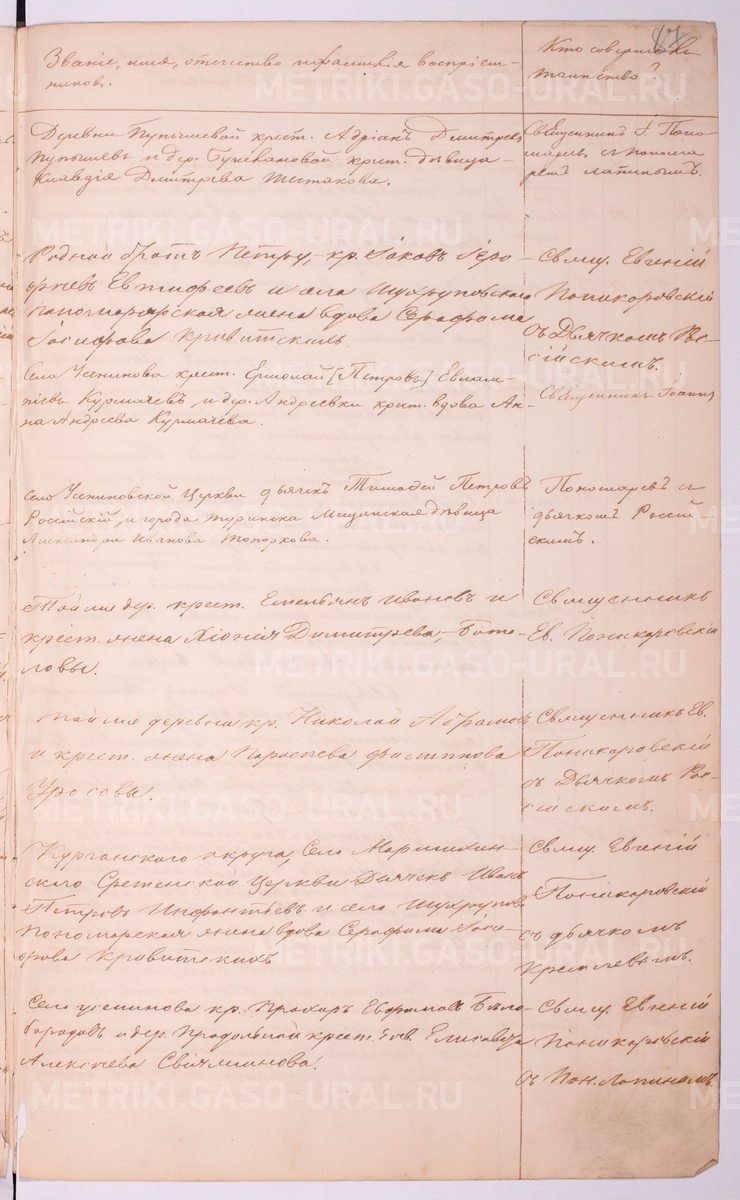 Званіе, имя, отчество и фамилія воспріем-
никовъ.
Кто совершалъ
таинство?
Деревни Пупышевой крест. Адріанъ Дмитревъ
Пупышевъ и дер. крест. дѣвица
Клавдія Дмитрева
Священникъ І. Поно-
маревъ съ понома-
ремъ Лапинымъ.
Родной братъ Петру, кр. Іаковъ Іеро-
феевъ Евтифеевъ и села Шухруповскаго
пономарская жена вдова Серафима
Іосифова
Свящ. Евгеній
Поникаровскій
съ Дьячкомъ Рос-
сійскимъ.
Села Усенинова крест. Ермолай [Петровъ] Евлам-
піевъ Курмачевъ, и дер. Андреевки крест. вдова Ан-
на Андреева Курмачева.
Священникъ Іоаннъ
Село Усениновской Церкви дьячекъ Тимофей Петровъ
Россійскій, и города Туринска Мещанская дѣвица
Александра Иванова Топоркова.
Пономаревъ съ
дьячкомъ Россій-
скимъ.
Той же дер. крест. Емельянъ Ивановъ и
крест. жена Хіонія Димитрева, Бото-
ловы.
Священникъ
Ев. Поникаровскій
Той же деревни кр. Николай Абрамовъ
и крест. жена Параскева Филиппова
Уросовы.
Священникъ Ев.
Поникаровскій
съ Дьячкомъ Рос-
сійскимъ.
Курганскаго округа, Село
скаго Срѣтенской Церкви Дьячекъ Иванъ
Петровъ Инфантьевъ и села Шухрупов.
пономарская жена вдова Серафима Іоси-
фова
Свящ. Евгеній
Поникаровскій
съ дьячкомъ
Кремлевымъ.
Села Усенинова кр. Прохоръ Евфимовъ Бѣло-
бородовъ и дер. Продольной крест. дѣв. Елисавета
Алексѣева
Свящ. Евгеній
Поникаровскій
съ Пон. Лапинымъ
METRIKI.GASO-URAL.RU